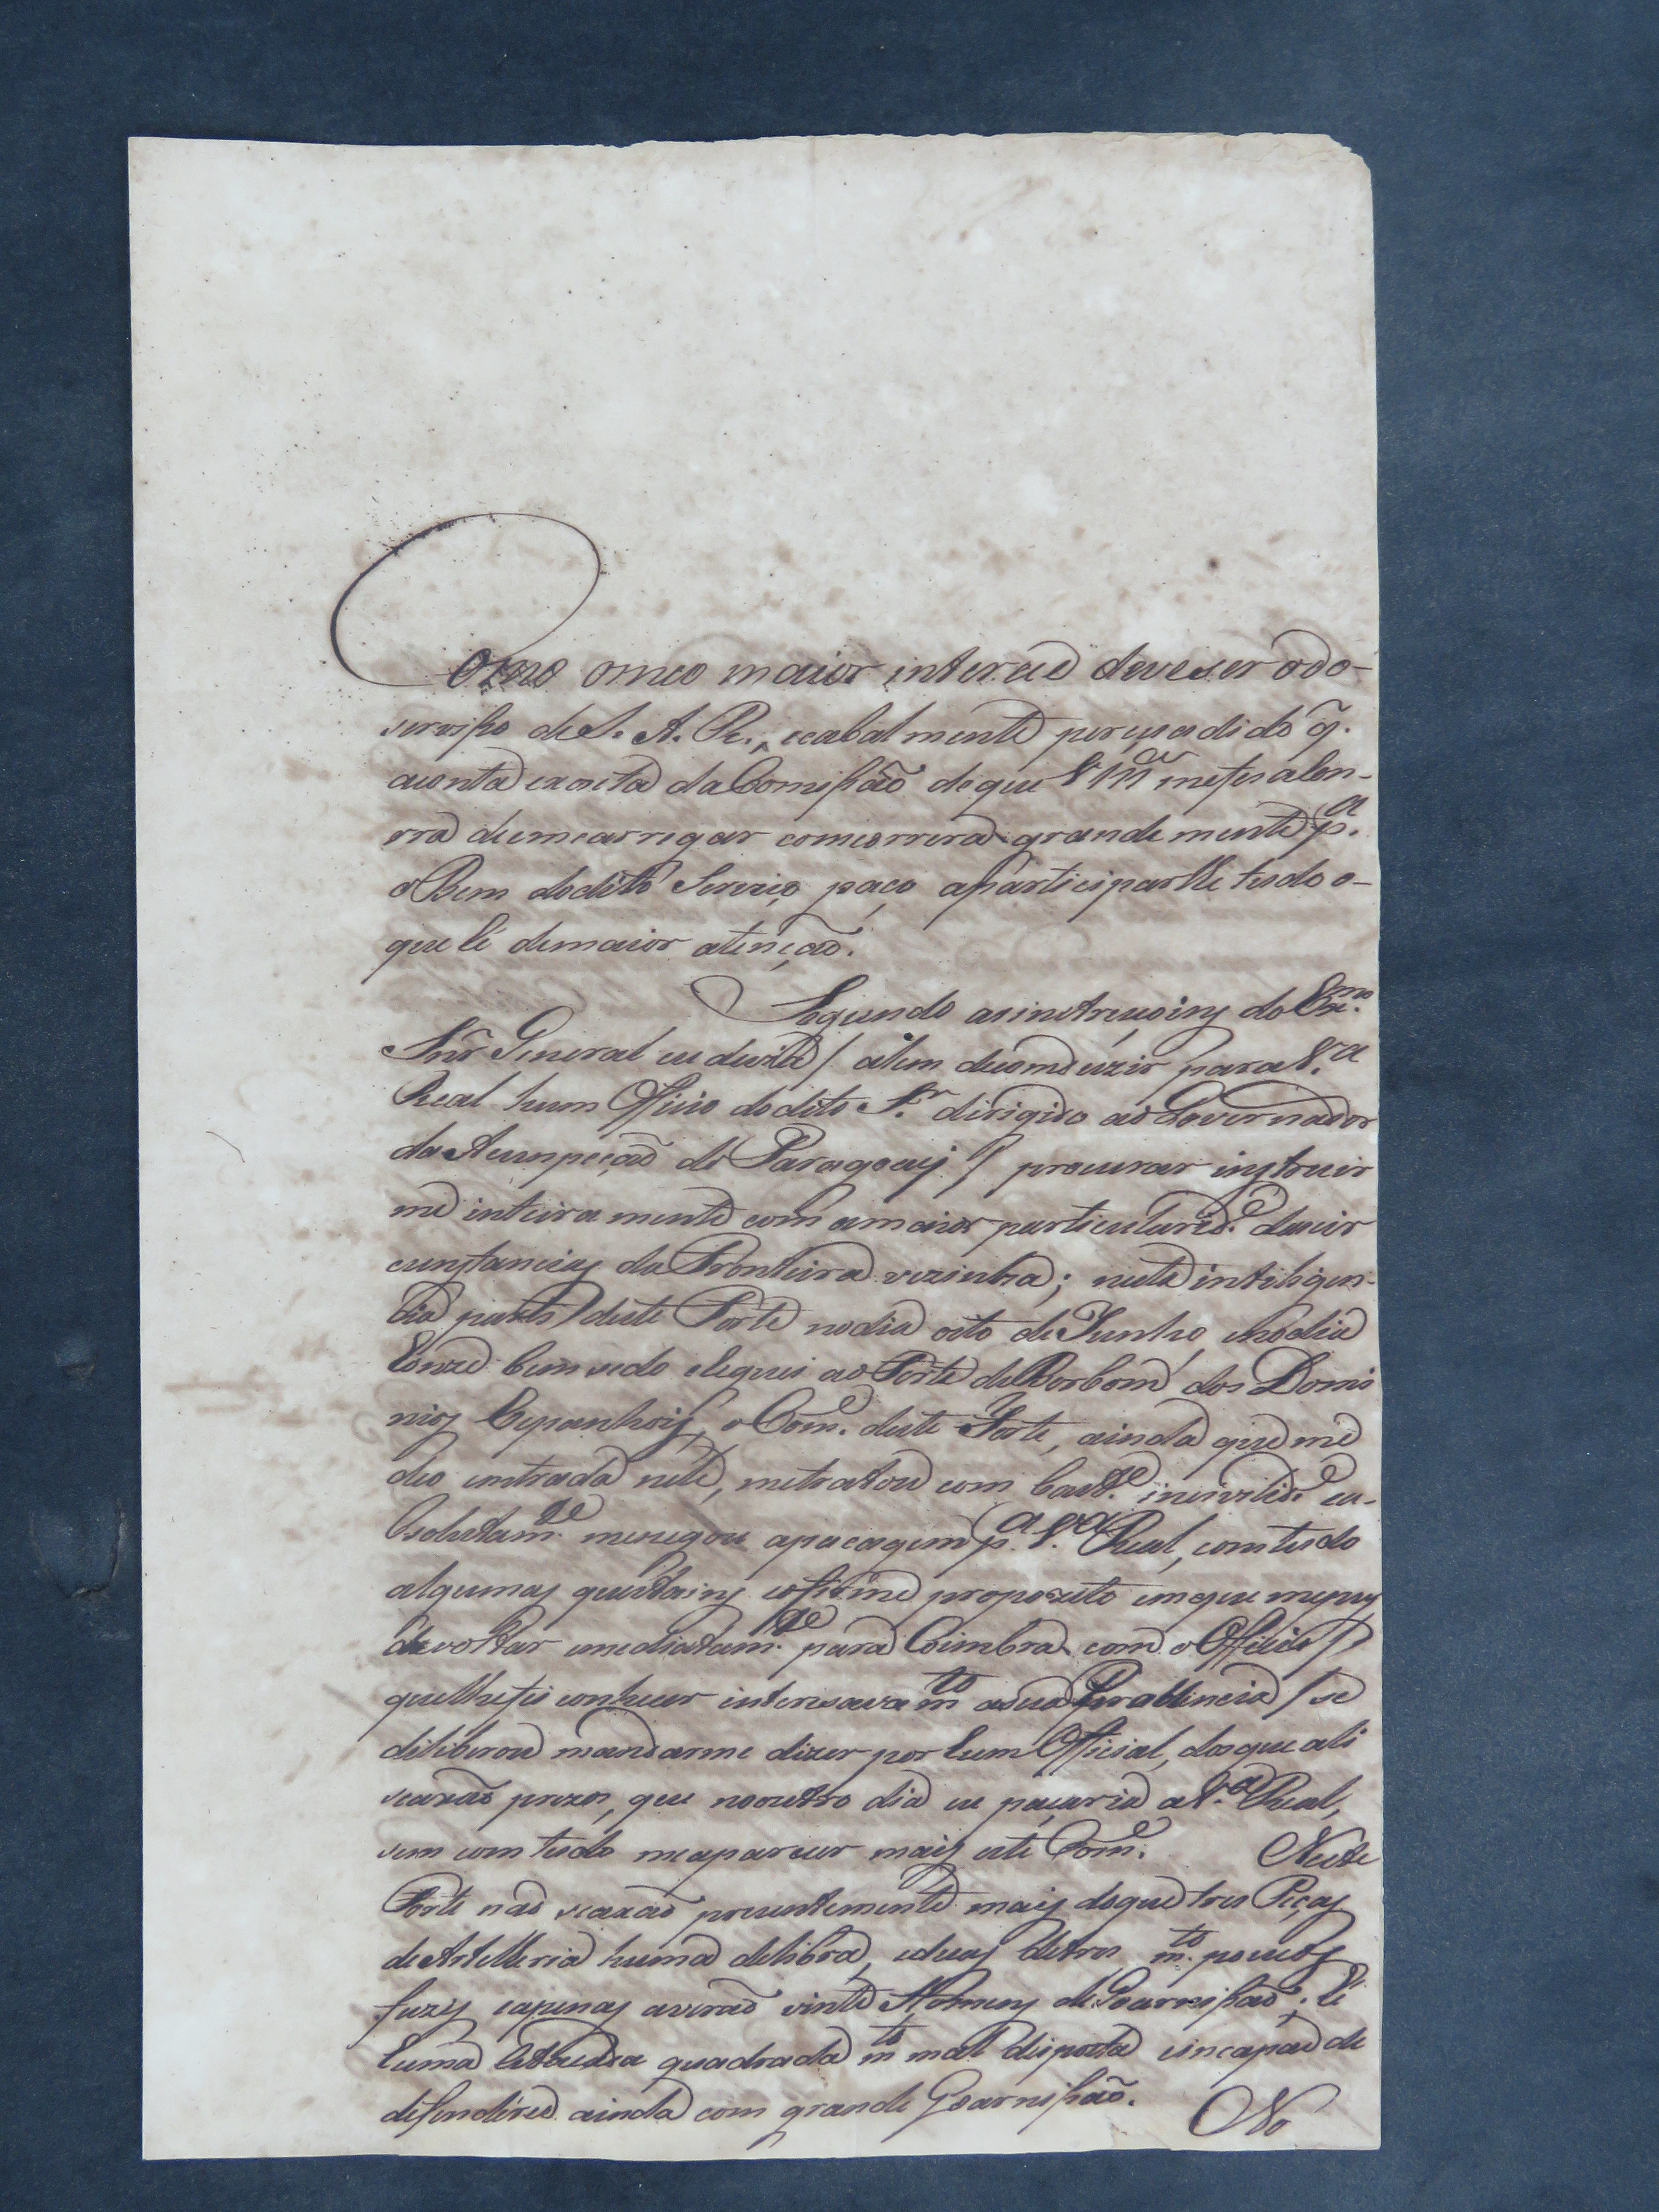 Como omeo maior interece deve ser odo-
servisso de S. A. R., ecabalmente perçuadido q̃.
aconta exacta da Comissão de que V M.ce mefes alon-
rra deemcarregar comcorrera grandemente p.a
oBem dodito Servico, paço aparticiparlhe tudo o-
que hé demaior atenção.
Segundo asinstruçoins do Ex.mo
Snr General eu devia / alem decomduzir para V.a
Real hum Officio dodito S.r dirigido aoGovernador
da Acumpção do Paragoay / procurar instruir
me inteiramente com amaior particularid.e dascir
cunstancias da Fronteira vezinha; nesta inteligen-
cia parti deste Forte nodia oito de Junho, enodia
honze bem sedo cheguei ao Forte de Borbom dos Domi
nios Espanhois, o Com.e deste Forte, ainda que me
deo entrada nele, metratou com bast.e incivilid.e ea-
bsolutam.te menegou apacagem p.a V.a Real, comtudo
algumas questoins eofirme propozito emque mepus
devoltar imediatam.te para Coimbra com o Officio /
quelhefis conhecer interesava m.to asua Provincia / se
deliberou mandarme dizer por hum Official, dosque ali
seaxão prezos, que nooutro dia eu paçaria aV.a Real,
sem com tudo meaparecer mais este Com.e Neste
Forte não seaxão prezentemente mais doque tres Peças
de Artelleria huma delibra, eduas detres, m.to poucos
fuzis, eapenas averão vinte Homens de Goarnissão; hé
huma Estacada quadrada m.to mal disposta eincapas de
defenderce ainda com grande Goarnissão.
No